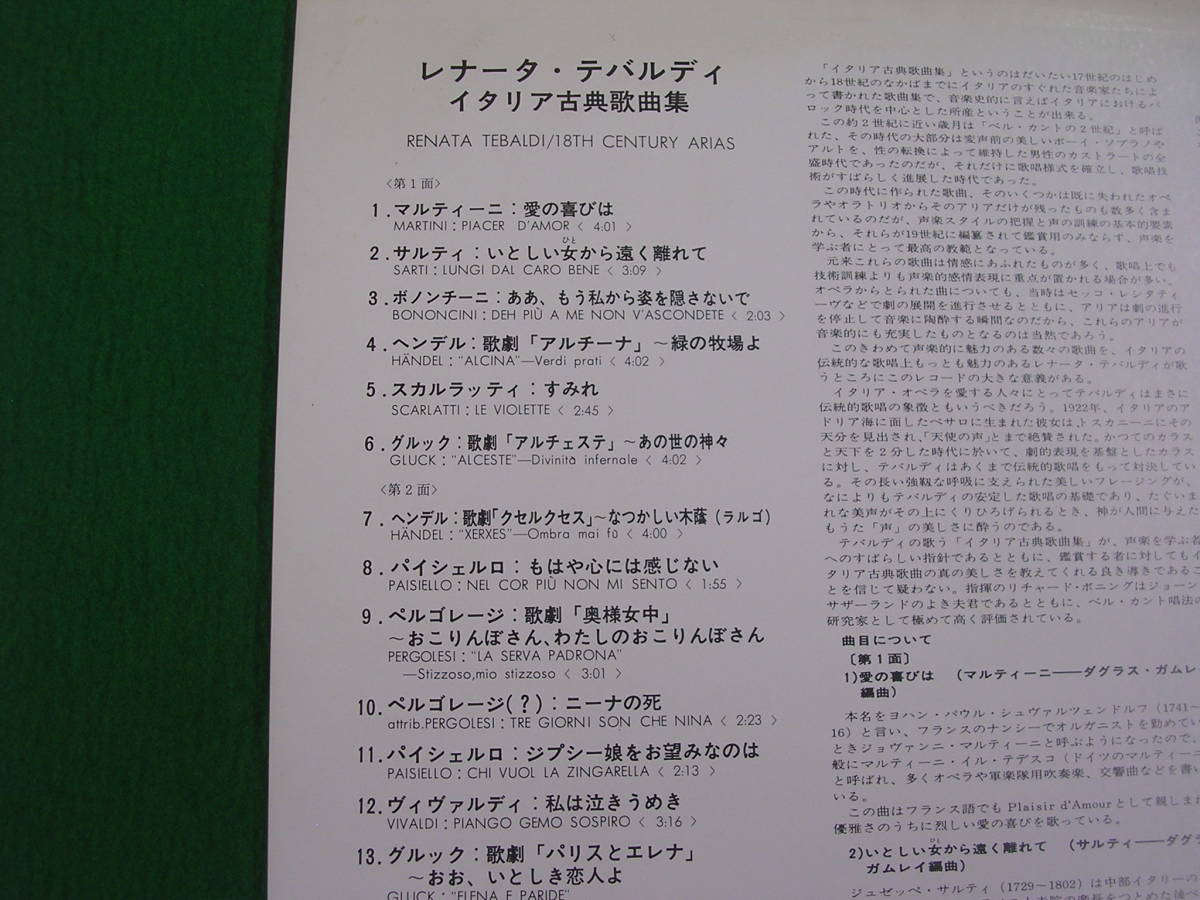 レナータ・テバルディ
イタリア古典歌曲集
RENATA TEBALDI/18TH CENTURY ARIAS
〈第1面〉
1.マルティーニ:愛の喜びは
MARTINI:PIACER D'AMOR〈 4:01 〉
2.サルティ:いとしい女から遠く離れて
SARTI:LUNGI DAL CARO BENE〈 3:09 〉
3.ボノンチーニ:ああ、もう私から姿を隠さないで
BONONCINI:DEH PIÙ A ME NON V'ASCONDETE〈 2:03 〉
4.ヘンデル:歌劇「アルチーナ」~緑の牧場よ
HÄNDEL:"ALCINA"—Verdi prati〈 4:02 〉
5.スカルラッティ:すみれ
SCARLATTI:LE VIOLETTE〈 2:45 〉
6.グルック:歌劇「アルチェステ」~あの世の神々
GLUCK:"ALCESTE"—Divinità infernale〈 4:02 〉
〈第2面〉
7.ヘンデル:歌劇「クセルクセス」~なつかしい木蔭(ラルゴ)
HÄNDEL:"XERXES"—Ombra mai fù〈 4:00 〉
8.パイシェルロ:もはや心には感じない
PAISIELLO:NEL COR PIÙ NON MI SENTO〈 1:55 〉
9.ペルゴレージ:歌劇「奥様女中」
~おこりんぼさん、わたしのおこりんぼさん
PERGOLESI:"LA SERVA PADRONA"
—Stizzoso,mio stizzoso〈 3:01 〉
10.ペルゴレージ(?):ニーナの死
attrib.PERGOLESI:TRE GIORNI SON CHE NINA〈 2:23 〉
11.パイシェルロ:ジプシー娘をお望みなのは
PAISIELLO:CHI VUOL LA ZINGARELLA〈 2:13 〉
12.ヴィヴァルディ:私は泣きうめき
VIVALDI:PIANGO GEMO SOSPIRO〈 3:16 〉
13.グルック:歌劇「パリスとエレナ」
~おお、いとしき恋人よ
GLUCK:"ELENA E PARIDE"
「イタリア古典歌曲集」というのはだいたい17世紀のはじめ
から18世紀のなかばまでにイタリアのすぐれた音楽家たちによ
って書かれた歌曲集で、音楽史的に言えばイタリアにおけるバ
ロック時代を中心とした所産ということが出来る。
この約2世紀に近い歳月は「ベル・カントの2世紀」と呼ば
れた、その時代の大部分は変声前の美しいボーイ・ソプラノや
アルトを、性の転換によって維持した男性のカストラートの全
盛時代であったのだが、それだけに歌唱様式を確立し、歌唱技
術がすばらしく進展した時代であった。
この時代に作られた歌曲、そのいくつかは既に失われたオペ
ラやオラトリオからそのアリアだけが残ったものも数多く含ま
れているのだが、声楽スタイルの把握と声の訓練の基本的要素
から、それらが19世紀に編纂されて鑑賞用のみならず、声楽を
学ぶ者にとって最高の教範となっている。
元来これらの歌曲は情感にあふれたものが多く、歌唱上でも
技術訓練よりも声楽的感情表現に重点が置かれる場合が多い。
オペラからとられた曲についても、当時はセッコ・レシタティ
ーヴなどで劇の展開を進行させるとともに、アリアは劇の進行
を停止して音楽に陶酔する瞬間なのだから、これらのアリアが
音楽的にも充実したものとなるのは当然であろう。
このきわめて声楽的に魅力のある数々の歌曲を、イタリアの
伝統的な歌唱上もっとも魅力のあるレナータ・テバルディが歌
うところにこのレコードの大きな意義がある。
イタリア・オペラを愛する人々にとってテバルディはまさに
伝統的歌唱の象徴ともいうべきだろう。1922年、イタリアのア
ドリア海に面したペサロに生まれた彼女は、トスカニーニにその
天分を見出され、「天使の声」とまで絶讃された。かつてのカラス
と天下を2分した時代に於いて、劇的表現を基盤としたカラス
に対し、テバルディはあくまで伝統的歌唱をもって対決してい
る。その長い強靱な呼吸に支えられた美しいフレージングが、
なによりもテバルディの安定した歌唱の基礎であり、たぐいま
れな美声がその上にくりひろげられるとき、神が人間に与えた
もうた「声」の美しさに酔うのである。
テバルディの歌う「イタリア古典歌曲集」が、声楽を学ぶ者
へのすばらしい指針であるとともに、鑑賞する者に対してもイ
タリア古典歌曲の真の美しさを教えてくれる良き導きであるこ
とを信じて疑わない。指揮のリチャード・ボニングはジョーン・
サザーランドのよき夫君であるとともに、ベル・カント唱法の
研究家として極めて高く評価されている。
曲目について
〔第1面〕
1)愛の喜びは (マルティーニ——ダグラス・ガムレ
編曲)
本名をヨハン・パウル・シュヴァルツェンドルフ(1741~
16)と言い、フランスのナンシーでオルガニストを勤めてい
ときジョヴァンニ・マルティーニと呼ぶようになったので、
般にマルティーニ・イル・テデスコ(ドイツのマルティー
と呼ばれ、多くオペラや軍楽隊用吹奏楽、交響曲などを書い
いる。
この曲はフランス語でも Plaisir d'Amourとして親しま
優雅さのうちに烈しい愛の喜びを歌っている。
2)いとしい女から遠く離れて (サルティ——ダグ
ガムレイ編曲)
ジュゼッペ・サルティ(1729~1802)は中部イタリーの